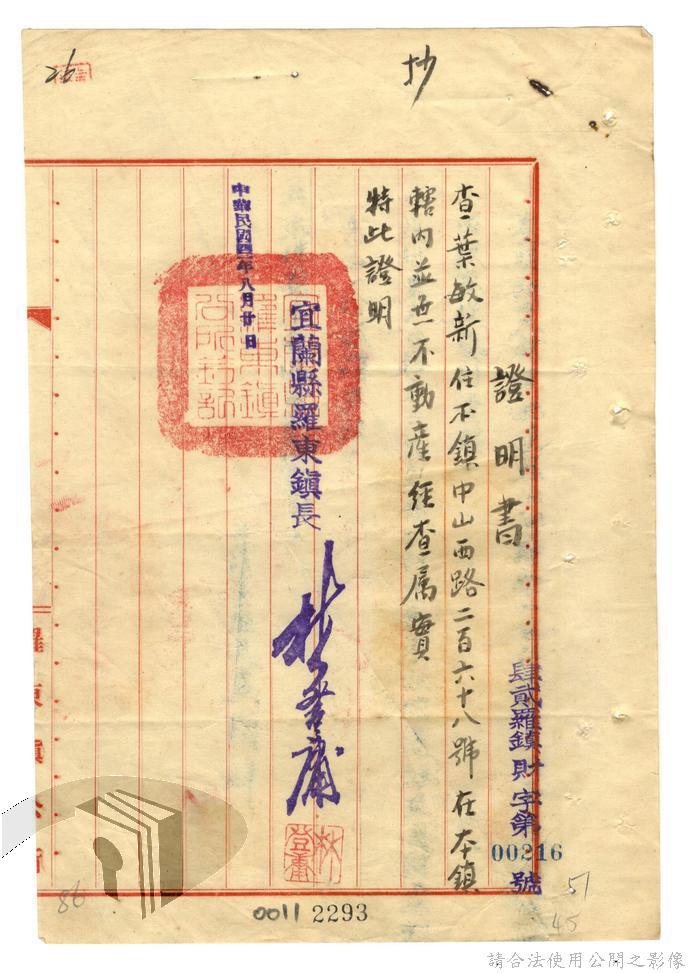 抄
證明書
肆貳羅鎮財字第00216號
查葉敏新住本鎮中山西路二百六十八號在本鎮
轄內並無不動產經查属實
特此證明
宜蘭縣羅東鎮長
林登庸
中華民國四二年八月廿日
羅東鎮公所
林登庸
26
86
0011 2293
51
45
請合法使用公開之影像